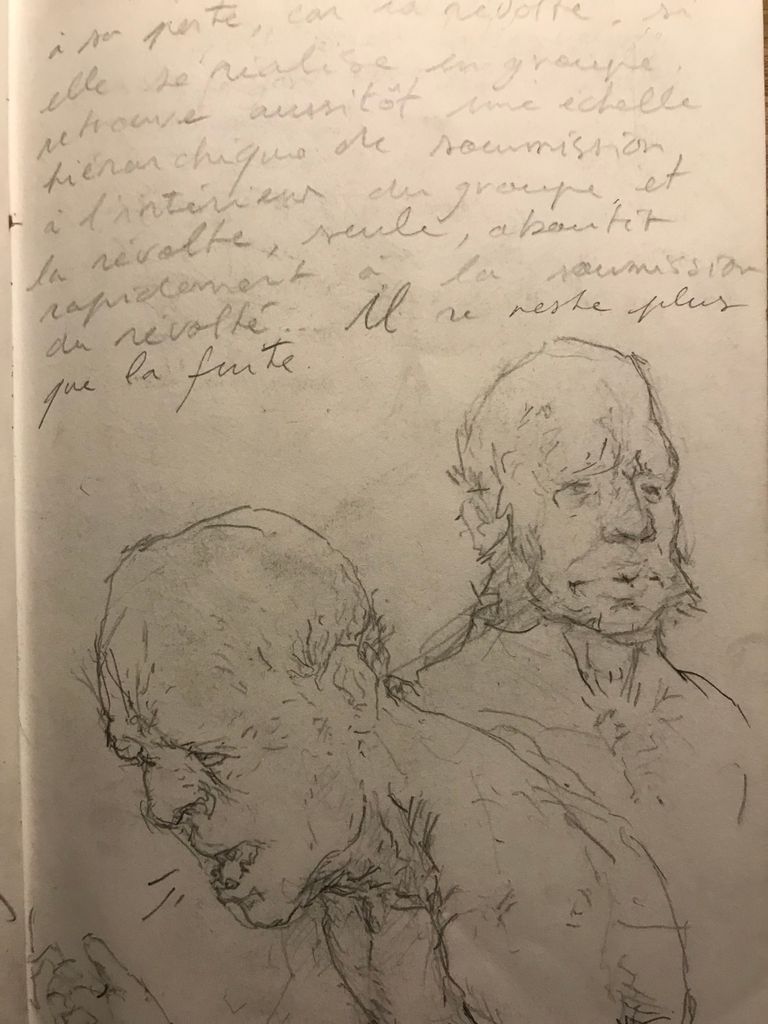 à sa perte, car la révolte, si
elle se réalise en groupe,
retrouve aussitôt une échelle
hiérarchique de soumission
à l'intérieur du groupe, et
la révolte, seule, aboutit
rapidement à la soumission
du révolté... Il ne reste plus
que la fuite.